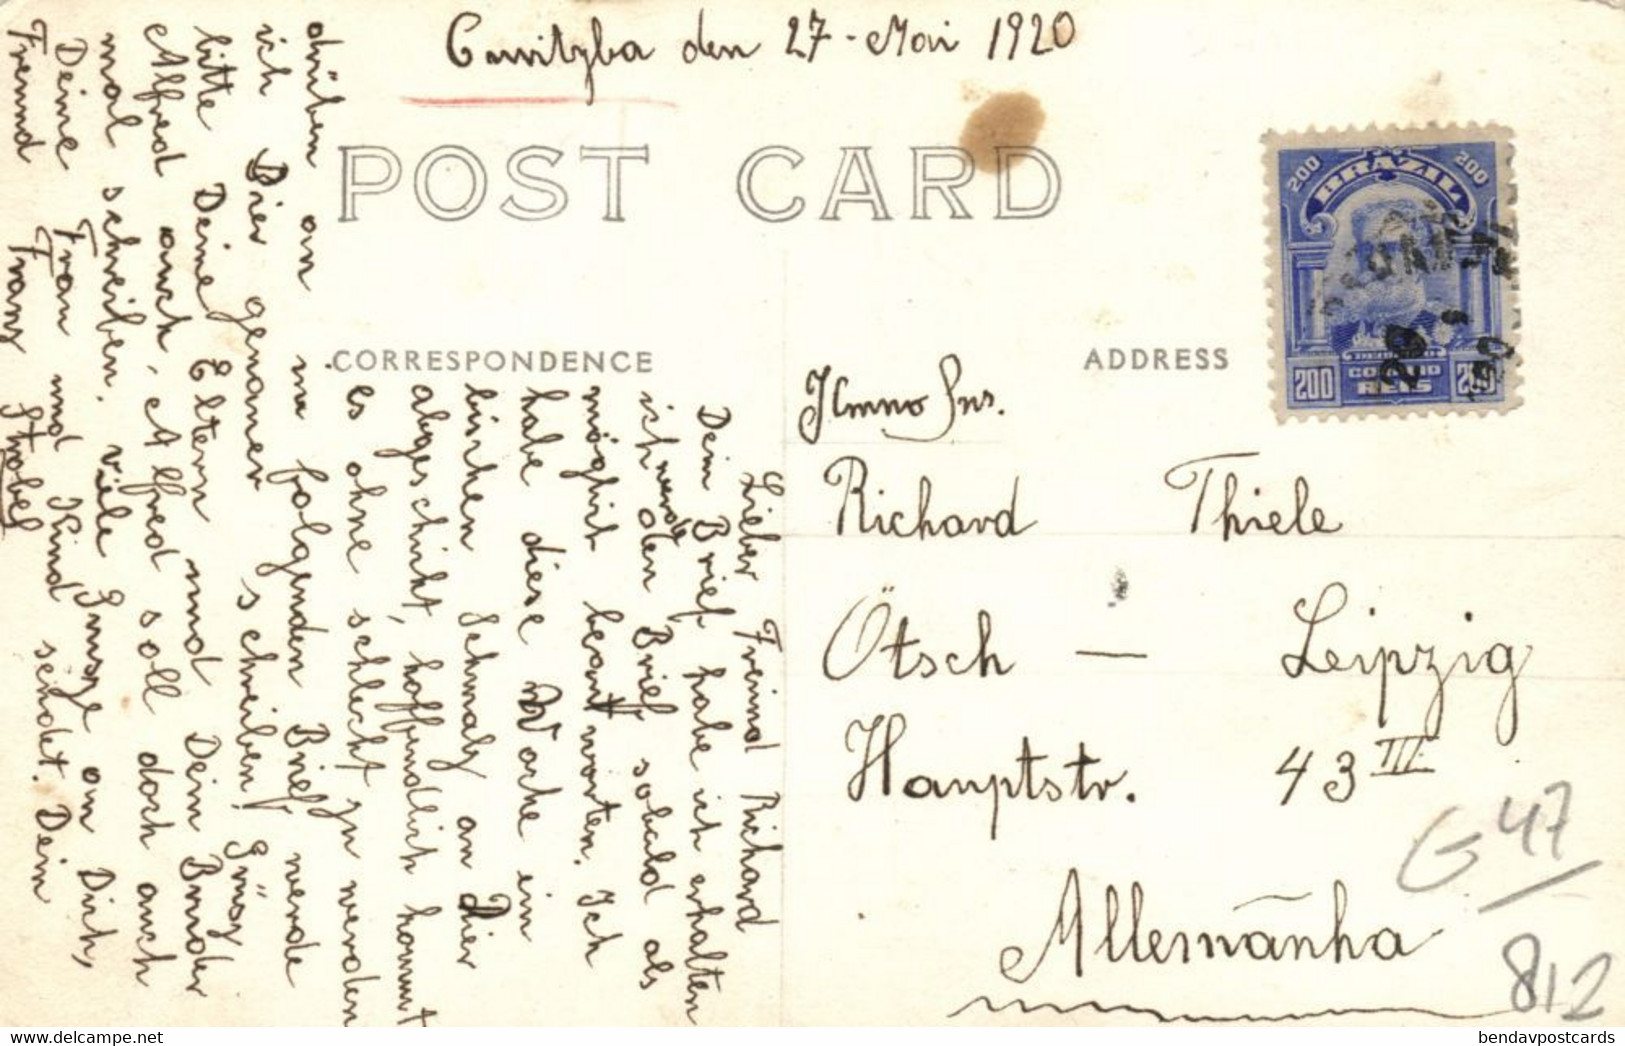 Curityba den 27-Mai 1920
POST CARD
CORRESPONDENCE
ADDRESS
200 BRAZIL 200
DEODORO
200 REIS 200
Lieber Freind Richard
Dein Brief habe ich erhalten
ich werde den Brief sobald als
möglich beantworten. Ich
habe diese Woche ein
bürchen Schmalz an Dier
abgeschickt, hoffendlich kommt
es ohne schlecht zu werden
drüben an im folgenden Brief, werde
ich Dier genauer schreiben! Grüsz
bitte Deine Eltern und Dein Bruder
Alfred auch, Alfred soll doch auch
mal schreiben. viele Grusze an Dich,
Deine Frau und Kind sendet. Dein
Freund Franz Strobel
Illmno Snr.
Richard Thiele
Ötsch — Leipzig
Hauptstr. 43 III
Allemanha
G 47
812
bendavpostcards